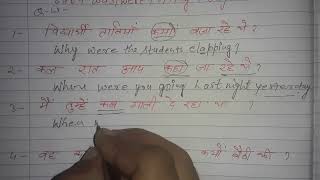 Q.W-
1- विद्यार्थी तालियाँ क्यों बजा रहे थे ?
Why were the students clapping?
2- कल रात आप कहाँ जा रहे थे ?
Where were you going last night yesterday
3- मैं तुम्हें कब गाली दे रहा था ?
When
4- वह क्यों बैठी थी ?